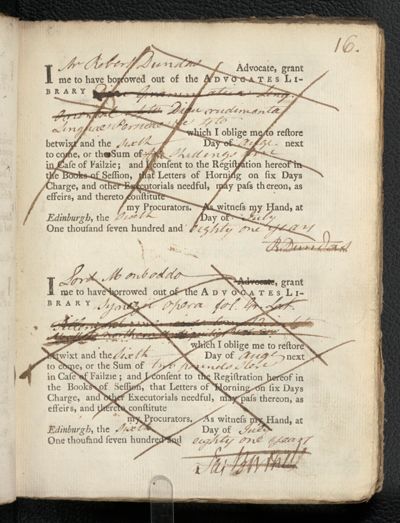 16.
I Mr Robert Dundas Advocate, grant
me to have borrowed out of the ADVOCATES LI-
BRARY
rudimenta
Linguae Persicae
which I oblige me to restore
betwixt and the sixth Day of Augt. next
to come, or the Sum of Shillings
in Case of Failzie; and I consent to the Registration hereof in
the Books of Session, that Letters of Horning on six Days
Charge, and other Executorials needful, may pass thereon, as
effeirs, and thereto constitute
my Procurators. As witness my Hand, at
Edinburgh, the Sixth Day of July
One thousand seven hundred and eighty one years
R. Dundas
I Lord Monboddo Advocate, grant
me to have borrowed out of the ADVOCATES LI-
BRARY opera fol.
which I oblige me to restore
betwixt and the sixth Day of Augt next
to come, or the Sum of two pounds
in Case of Failzie; and I consent to the Registration hereof in
the Books of Session, that Letters of Horning on six Days
Charge, and other Executorials needful, may pass thereon, as
effeirs, and thereto constitute
my Procurators. As witness my Hand, at
Edinburgh, the Sixth Day of July
One thousand seven hundred and eighty one years